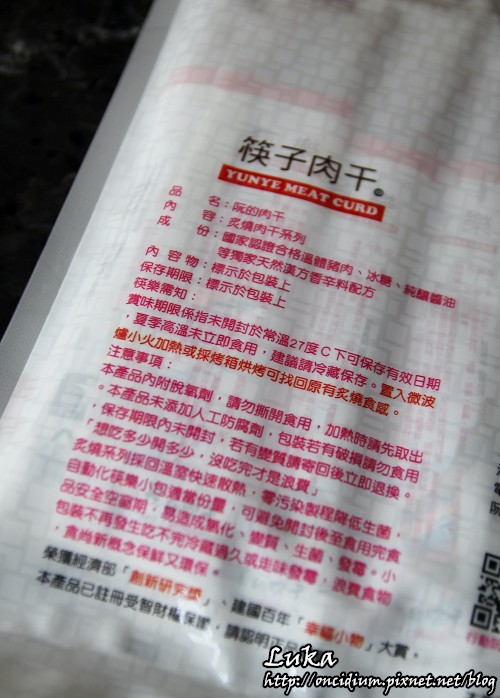 筷子肉干
YUNYE MEAT CURD
品　名：阮的肉干
內　容：炙燒肉干系列
成　份：國家認證合格溫體豬肉、冰糖、純釀醬油
等獨家天然漢方香辛料配方
內 容 物：標示於包裝上
保存期限：標示於包裝上
筷樂需知：
賞味期限係指未開封於常溫27度C下可保存有效日期
，夏季高溫未立即食用，建議請冷藏保存。置入微波
爐小火加熱或採烤箱烘烤可找回原有炙燒食感。
注意事項：
本產品內附脫氧劑，請勿撕開食用，加熱時請先取出
。本產品未添加人工防腐劑，包裝若有破損請勿食用
，保存期限內未開封，若有變質請寄回後立即退換。
「想吃多少開多少，沒吃完才是浪費」
炙燒系列採回溫室快速散熱，零污染製程降低生菌，
自動化筷樂小包適當份量，可避免開封後至食用完食
品安全空窗期，易造成氧化、變質、生菌、發霉。小
包裝不再發生吃不完冷藏過久或走味發霉，浪費食物
，食尚新概念保鮮又環保。
榮獲經濟部「創新研究獎」、建國百年「幸福小物」大賞。
本產品已註冊受智財權保護，請認明正
行動
Luka
http://oncidium.pixnet.net/blog